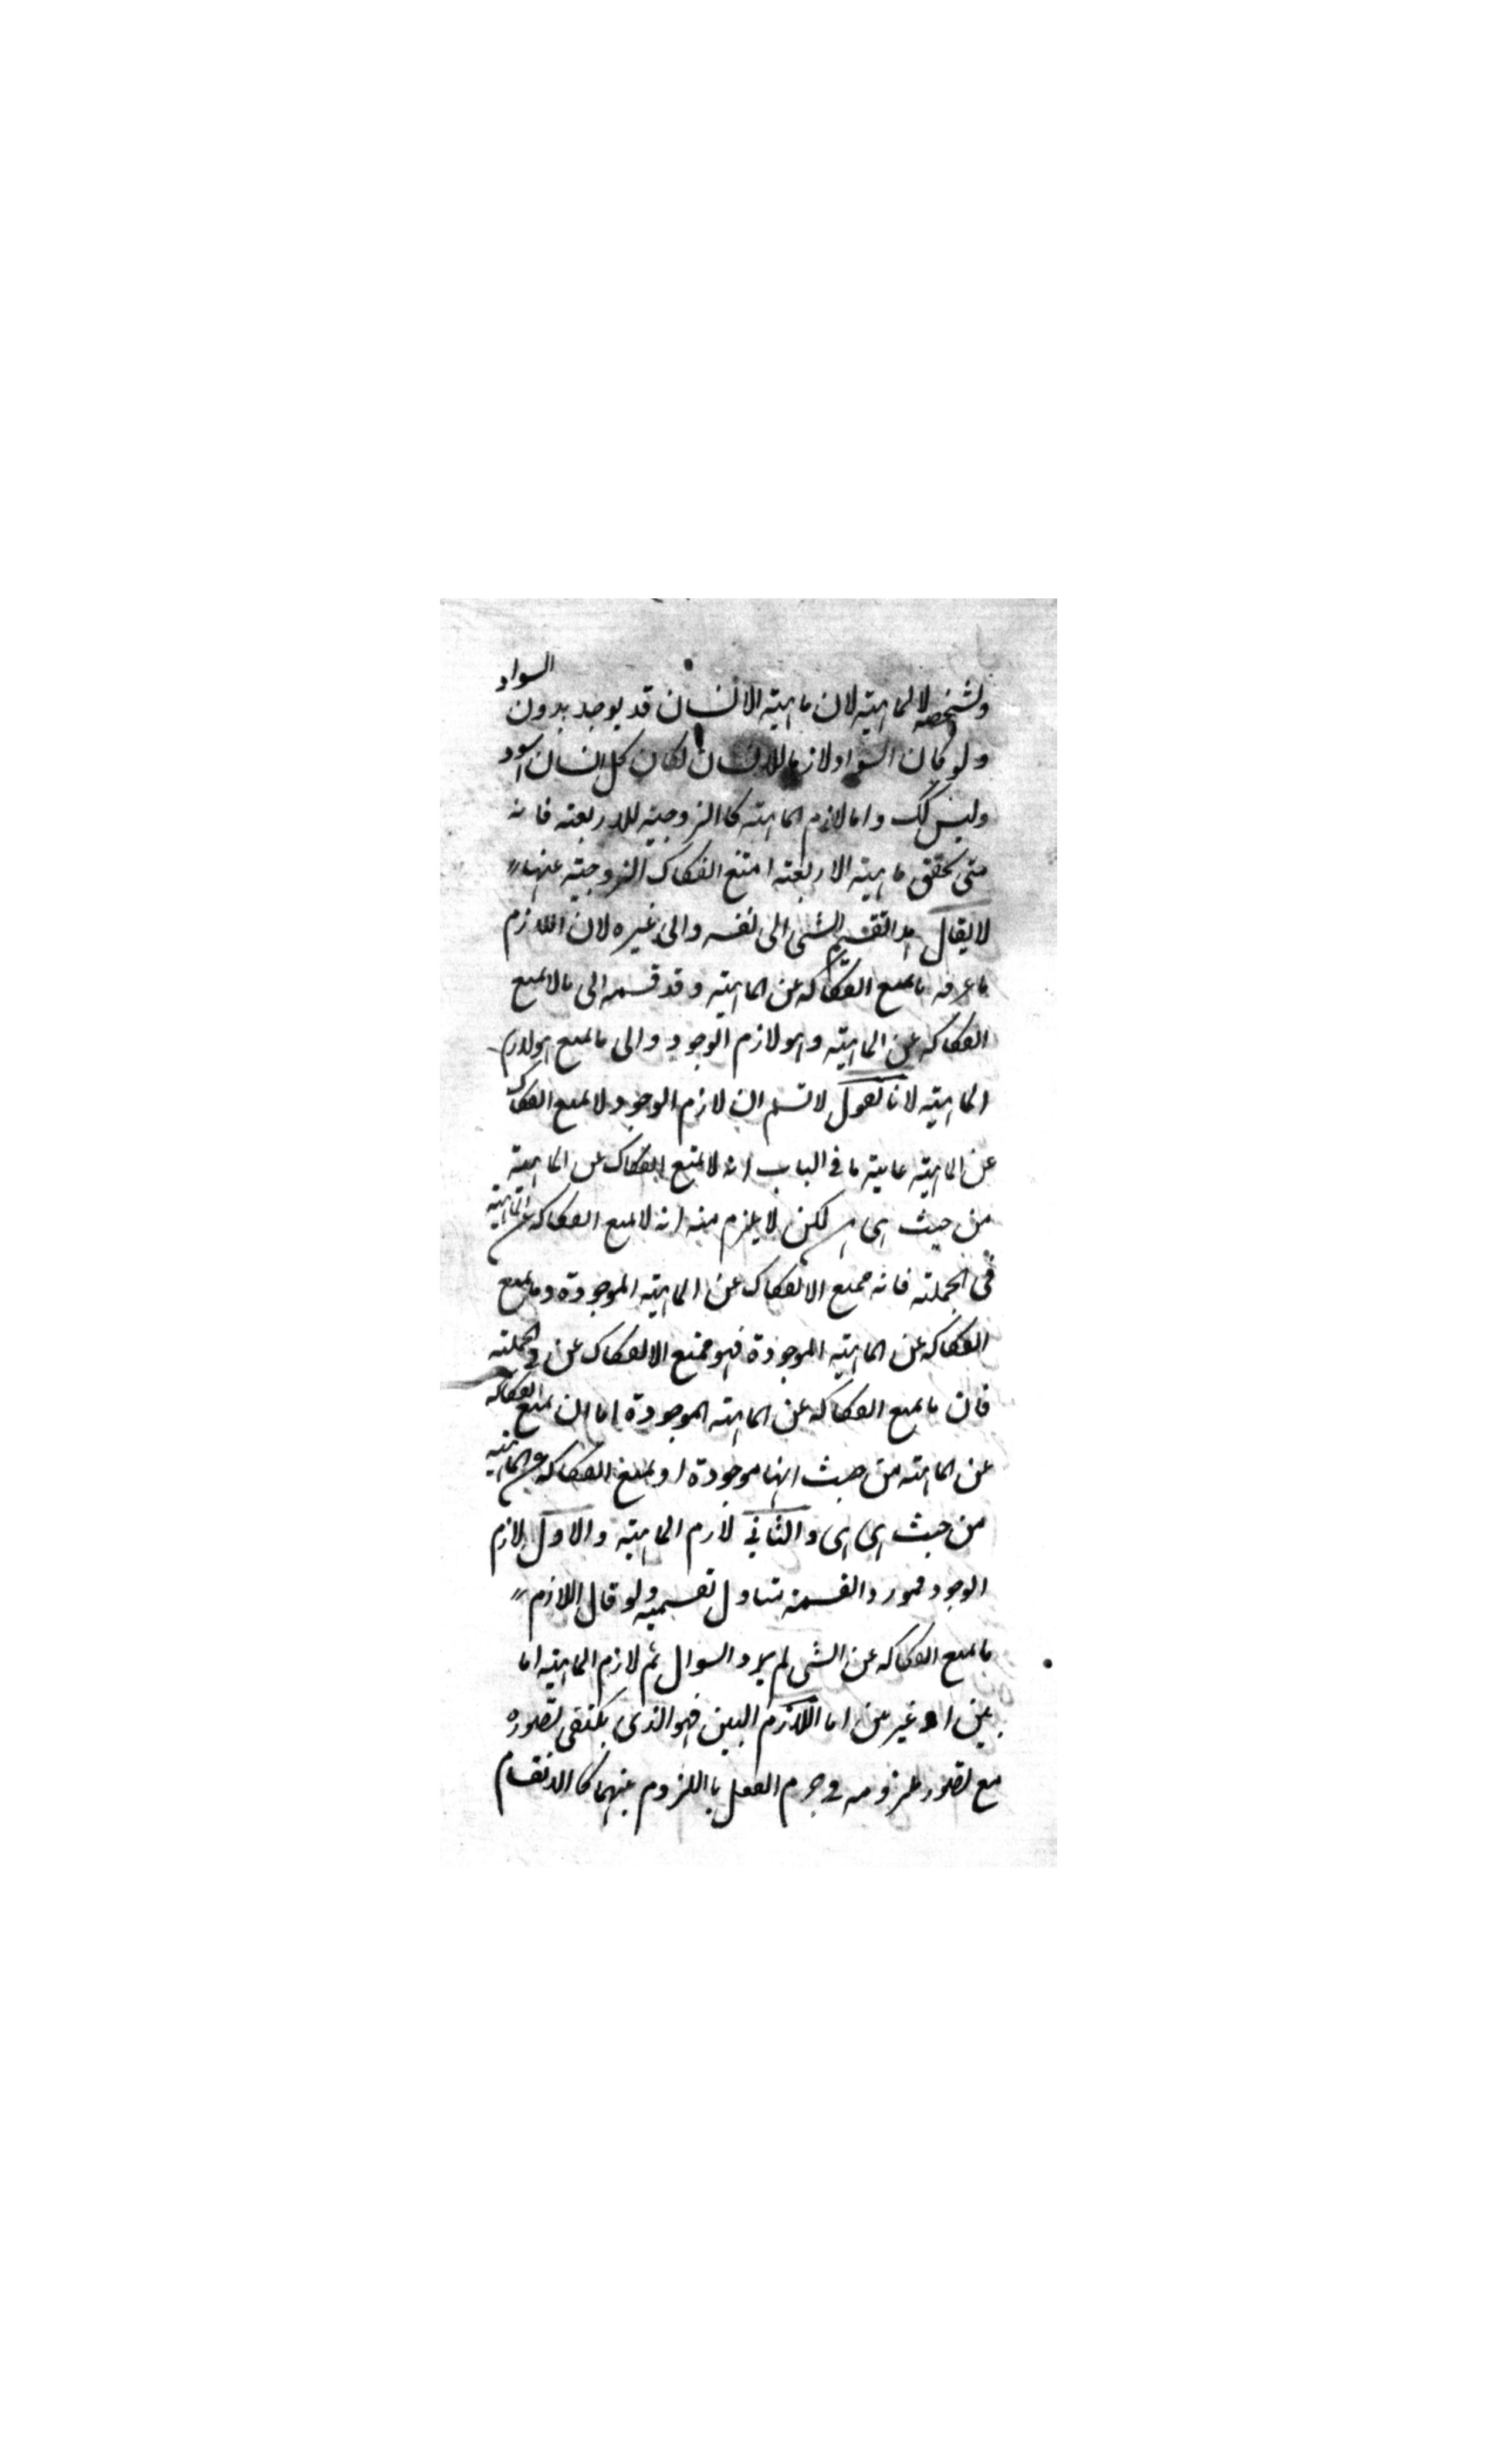 وتشخصه لا لماهيته لان ماهيته الانسان قد يوجد بدون السواد
ولو كان السواد لازما للانسان لكان كل انسان اسود
وليس كك واما لازم الماهيته كاالزوجيته للاربعته فانه
متى تحقق ماهيته الاربعته امتنع انفكاك الزوجيته عنها
لا يقال هذا تقسيم الشى الى نفسه والى غيره لان اللازم
ما عرفه ما يمتنع انفكاكه عن الماهيته وقد قسمه الى ما لا يمتنع
انفكاكه عن الماهيته وهو لازم الوجود والى ما يمتنع وهو لازم
الماهيته لانا نقول لا نسلم ان لازم الوجود لا يمتنع انفكاك
عن الماهيته غايته ما في الباب انه لا يمتنع انفكاك عن الماهيته
من حيث هى هى لكن لا يلزم منه انه لا يمتنع انفكاكه عن الماهيته
فى الجملته فانه ممتنع الانفكاك عن الماهيته الموجودة وما يمتنع
انفكاكه عن الماهيته الموجودة فهو ممتنع الانفكاك عن في الجملته
فان ما يمتنع انفكاكه عن الماهيته الموجودة اما ان يمتنع انفكاكه
عن الماهيته من حيث انها موجودة او يمتنع انفكاكه عن الماهيته
من حيث هى هى والثاني لازم الماهيته والاول لازم
الوجود فمورد القسمة متناول لقسميه ولو قال اللازم
ما يمتنع انفكاكه عن الشى لم يرد السوال ثم لازم الماهيته اما
بين او غير بين اما اللازم البين فهو الذى يكتفى تصوره
مع تصور ملزومه في جزم العقل باللزوم بينهما كاالانقسام